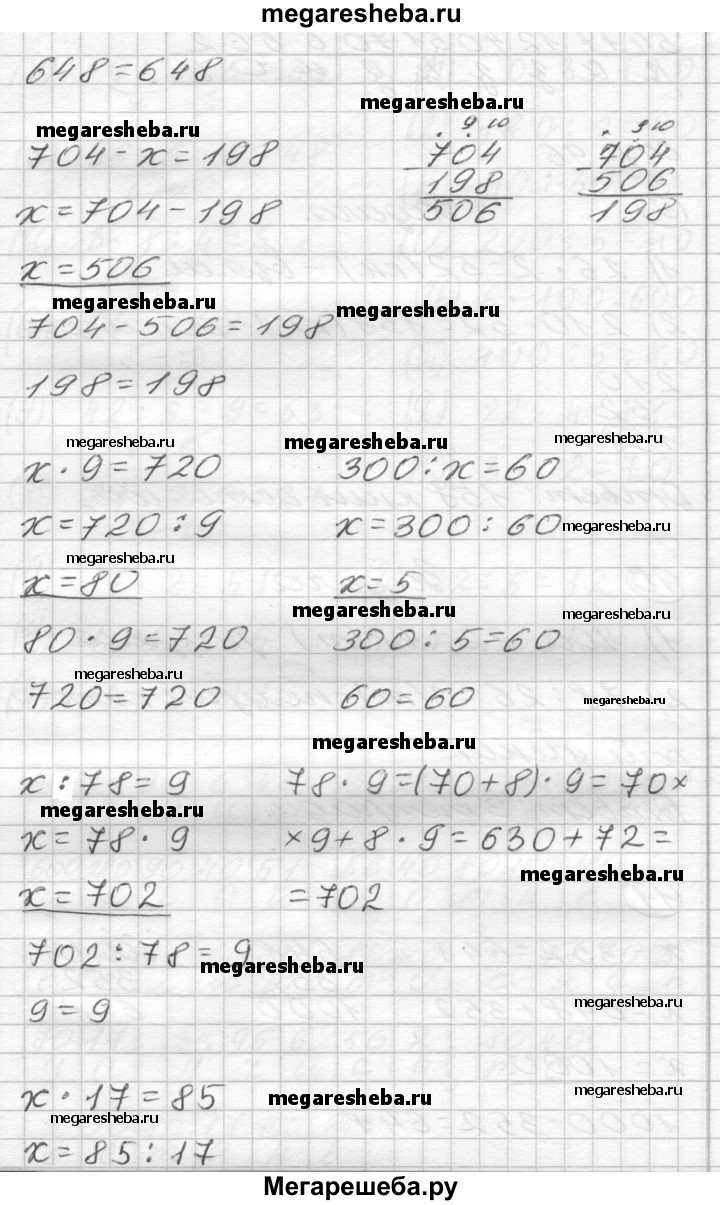 megaresheba.ru
648=648
megaresheba.ru
megaresheba.ru
9 10
9 10
704-x=198
704
704
198
506
x=704-198
506
198
x=506
megaresheba.ru
megaresheba.ru
704-506=198
198=198
megaresheba.ru
megaresheba.ru
megaresheba.ru
x·9=720
300:x=60
x=720:9
x=300:60
megaresheba.ru
megaresheba.ru
x=80
x=5
megaresheba.ru
megaresheba.ru
80·9=720
300:5=60
megaresheba.ru
720=720
60=60
megaresheba.ru
megaresheba.ru
x:78=9
78·9=(70+8)·9=70×
megaresheba.ru
x=78·9
×9+8·9=630+72=
megaresheba.ru
x=702
=702
702:78=9
megaresheba.ru
9=9
megaresheba.ru
x·17=85
megaresheba.ru
megaresheba.ru
megaresheba.ru
x=85:17
Мегарешеба.ру